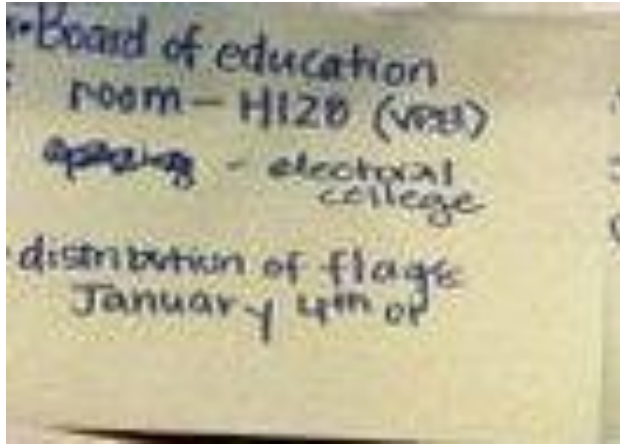 •Board of education
room - H128 (VPB)
- electoral
college
distribution of flags
January 4th or